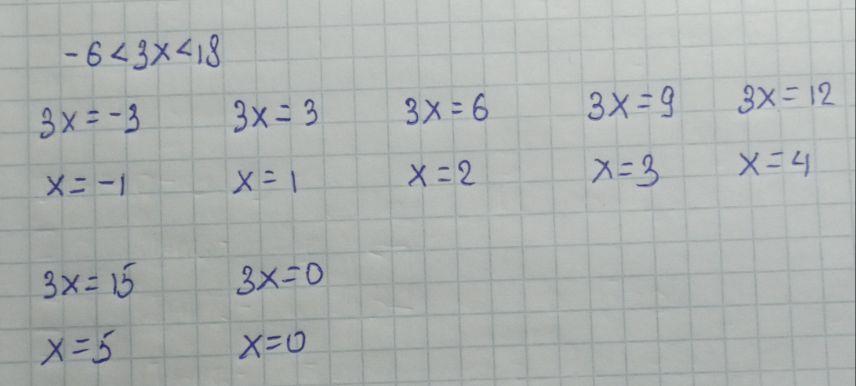 -6<3x<18
3x=-3 3x=3 3x=6 3x=9 3x=12
x=-1 x=1 x=2 x=3 x=4
3x=15 3x=0
x=5 x=0